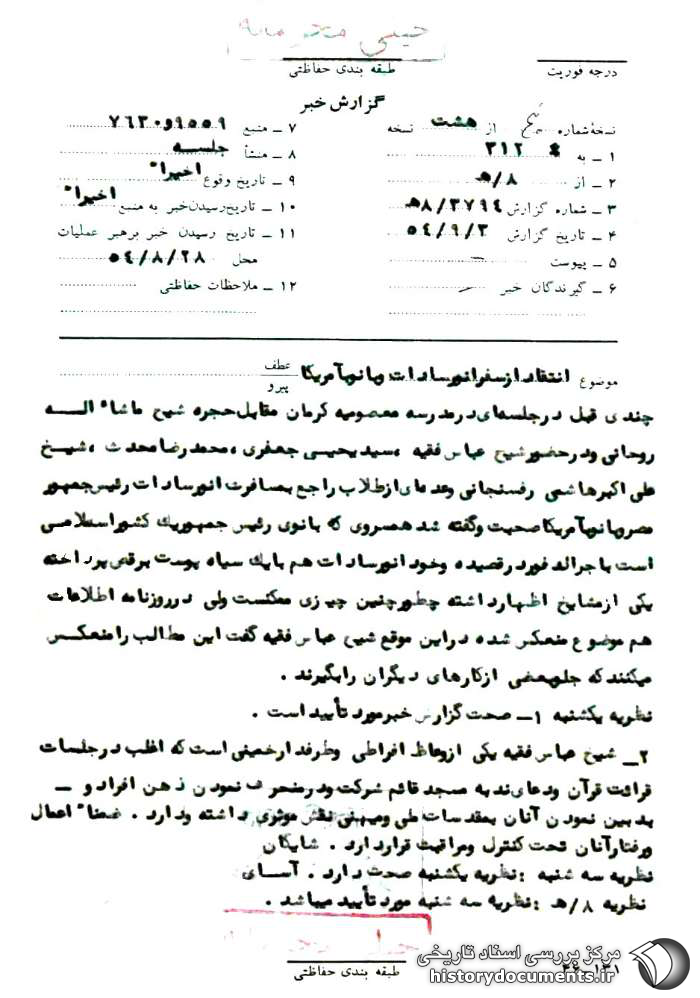 خیلی محرمانه
درجه فوریت
طبقه بندی حفاظتی
گزارش خبر
نسخهٔ شماره از هشت نسخه
۱ ـ به ۳۱۲
۲ ـ از ۸/ه
۳ ـ شماره گزارش ۸/۳۷۹۴ه
۴ ـ تاریخ گزارش ۵۴/۹/۳
۵ ـ پیوست —
۶ ـ گیرندگان خبر
۷ ـ منبع ۹۵۵۹و۷۶۳۰
۸ ـ منشأ جلسه
۹ ـ تاریخ وقوع اخیراً
۱۰ ـ تاریخ رسیدن خبر به منبع اخیراً
۱۱ ـ تاریخ رسیدن خبر برهبر عملیات
محل ۵۴/۸/۲۸
۱۲ ـ ملاحظات حفاظتی
موضوع انتقاد از سفر انور سادات و بانو بآمریکا
عطف
پیرو
چندی قبل در جلسهای در مدرسه معصومیه کرمان مقابل حجره شیخ ماشاء الله
روحانی و در حضور شیخ عباس فقیه ، سید یحیی جعفری ، محمد رضا محدث ، شیخ
علی اکبر هاشمی رفسنجانی و عدهای از طلاب راجع بمسافرت انور سادات رئیس جمهور
مصر و بانو بآمریکا صحبت و گفته شد همسروی که بانوی رئیس جمهور یک کشور اسلامی
است با جرالد فورد رقصیده و خود انور سادات هم با یک سیاه پوست برقص پرداخته
یکی از مشایخ اظهار داشته چطور چنین چیزی ممکنست ولی در روزنامه اطلاعات
هم موضوع منعکس شده در این موقع شیخ عباس فقیه گفت این مطالب را منعکس
میکنند که جلوبعضی از کارهای دیگران را بگیرند .
نظریه یکشنبه ۱ـ صحت گزارش خبر مورد تأیید است .
۲ـ شیخ عباس فقیه یکی از وعاظ افراطی و طرفدار خمینی است که اغلب در جلسات
قرائت قرآن و دعای ندبه مسجد قائم شرکت و در منحرف نمودن ذهن افراد و ـ
بدبین نمودن آنان بمقدسات ملی و میهنی نقش موثری داشته و دارد . ضمناً اعمال
و رفتار آنان تحت کنترل و مراقبت قرار دارد . شایگان
نظریه سه شنبه : نظریه یکشنبه صحت دارد . آسای
نظریه ۸/ه : نظریه سه شنبه مورد تأیید میباشد .
طبقه بندی حفاظتی
مرکز بررسی اسناد تاریخی
historydocuments.ir